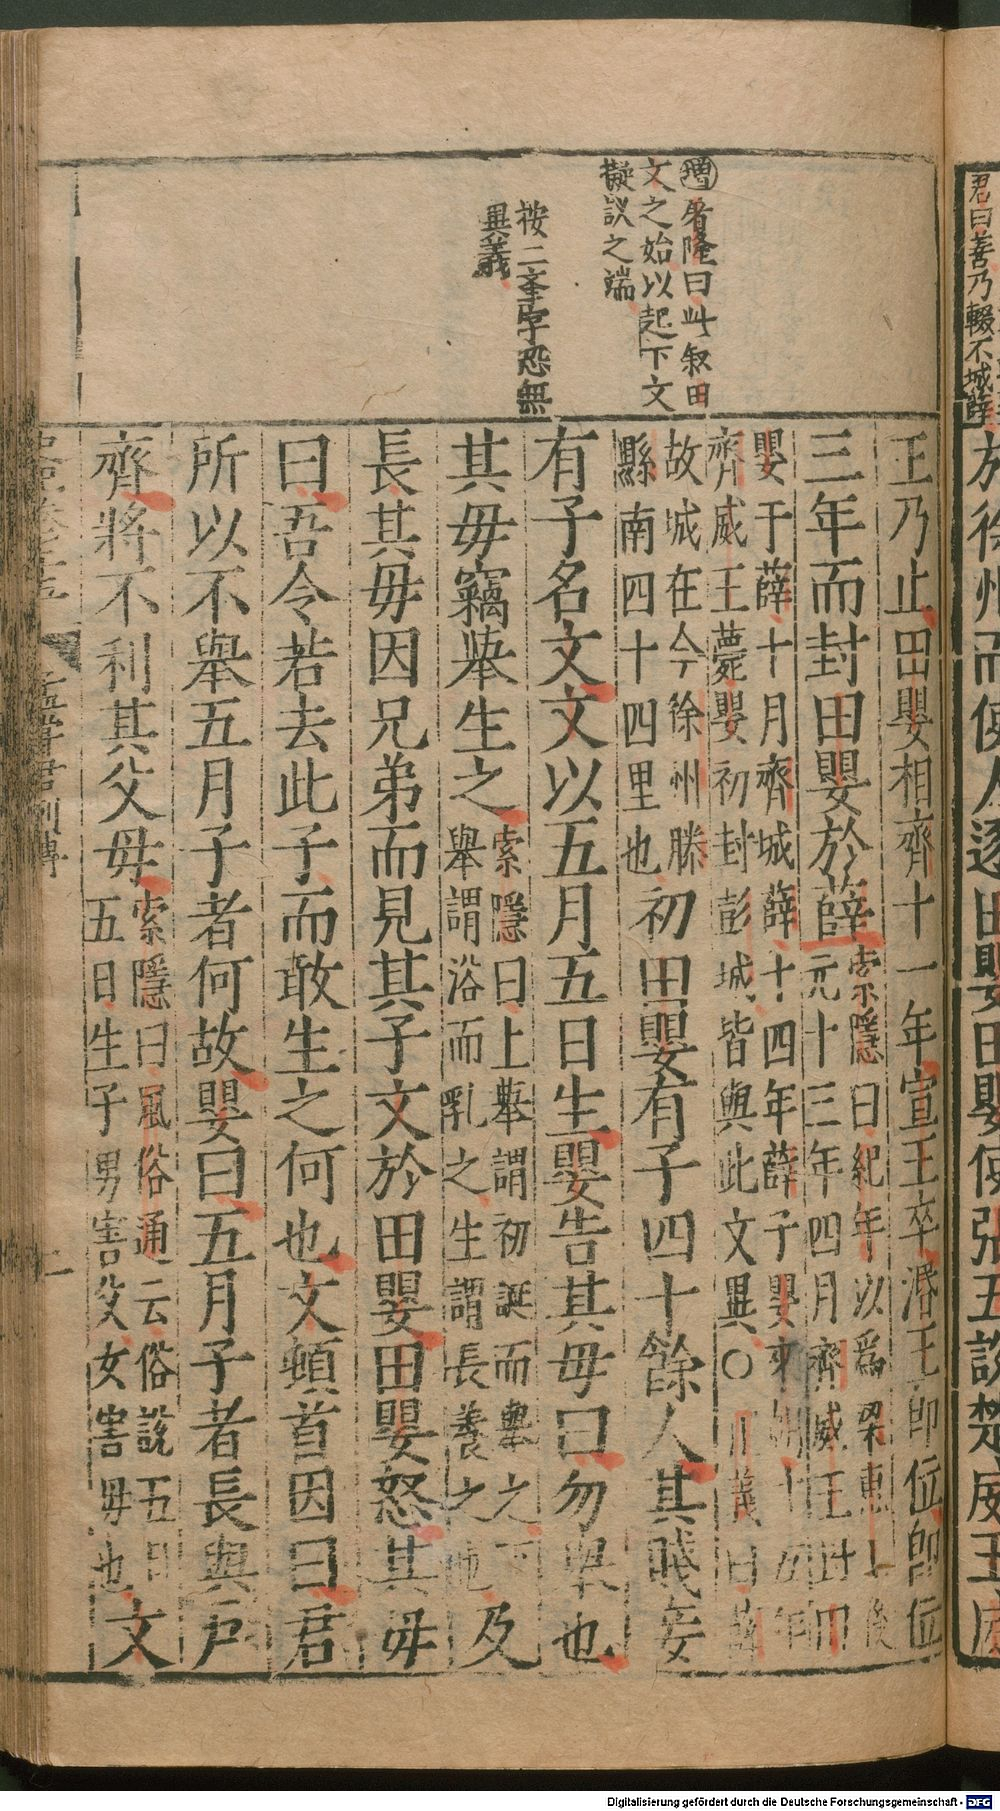 君曰善乃輟不城薛
於徐州而使人逐田嬰田嬰使張丑說楚威王威
增屠隆曰此叙田
文之始以起下文
擬議之端
按二峯字恐無
異義
王乃止田嬰相齊十一年宣王卒湣王卽位卽位
三年而封田嬰於薛
索隱曰紀年以爲梁惠王後
元十三年四月齊威王封田
嬰于薛十月齊城薛十四年薛子嬰來朝十五年
齊威王薨嬰初封彭城皆與此文異〇正義曰薛
故城在今徐州滕
縣南四十四里也
初田嬰有子四十餘人其賤妾
有子名文文以五月五日生嬰告其母曰勿舉也
其母竊舉生之
索隱曰上舉謂初誕而舉之下
舉謂浴而乳之生謂長養之也
及
長其母因兄弟而見其子文於田嬰田嬰怒其母
曰吾令若去此子而敢生之何也文頓首因曰君
所以不舉五月子者何故嬰曰五月子者長與戶
齊將不利其父母
索隱曰風俗通云俗說五月
五日生子男害父女害母也
文
孟嘗君列傳
二
Digitalisierung gefördert durch die Deutsche Forschungsgemeinschaft - DFG